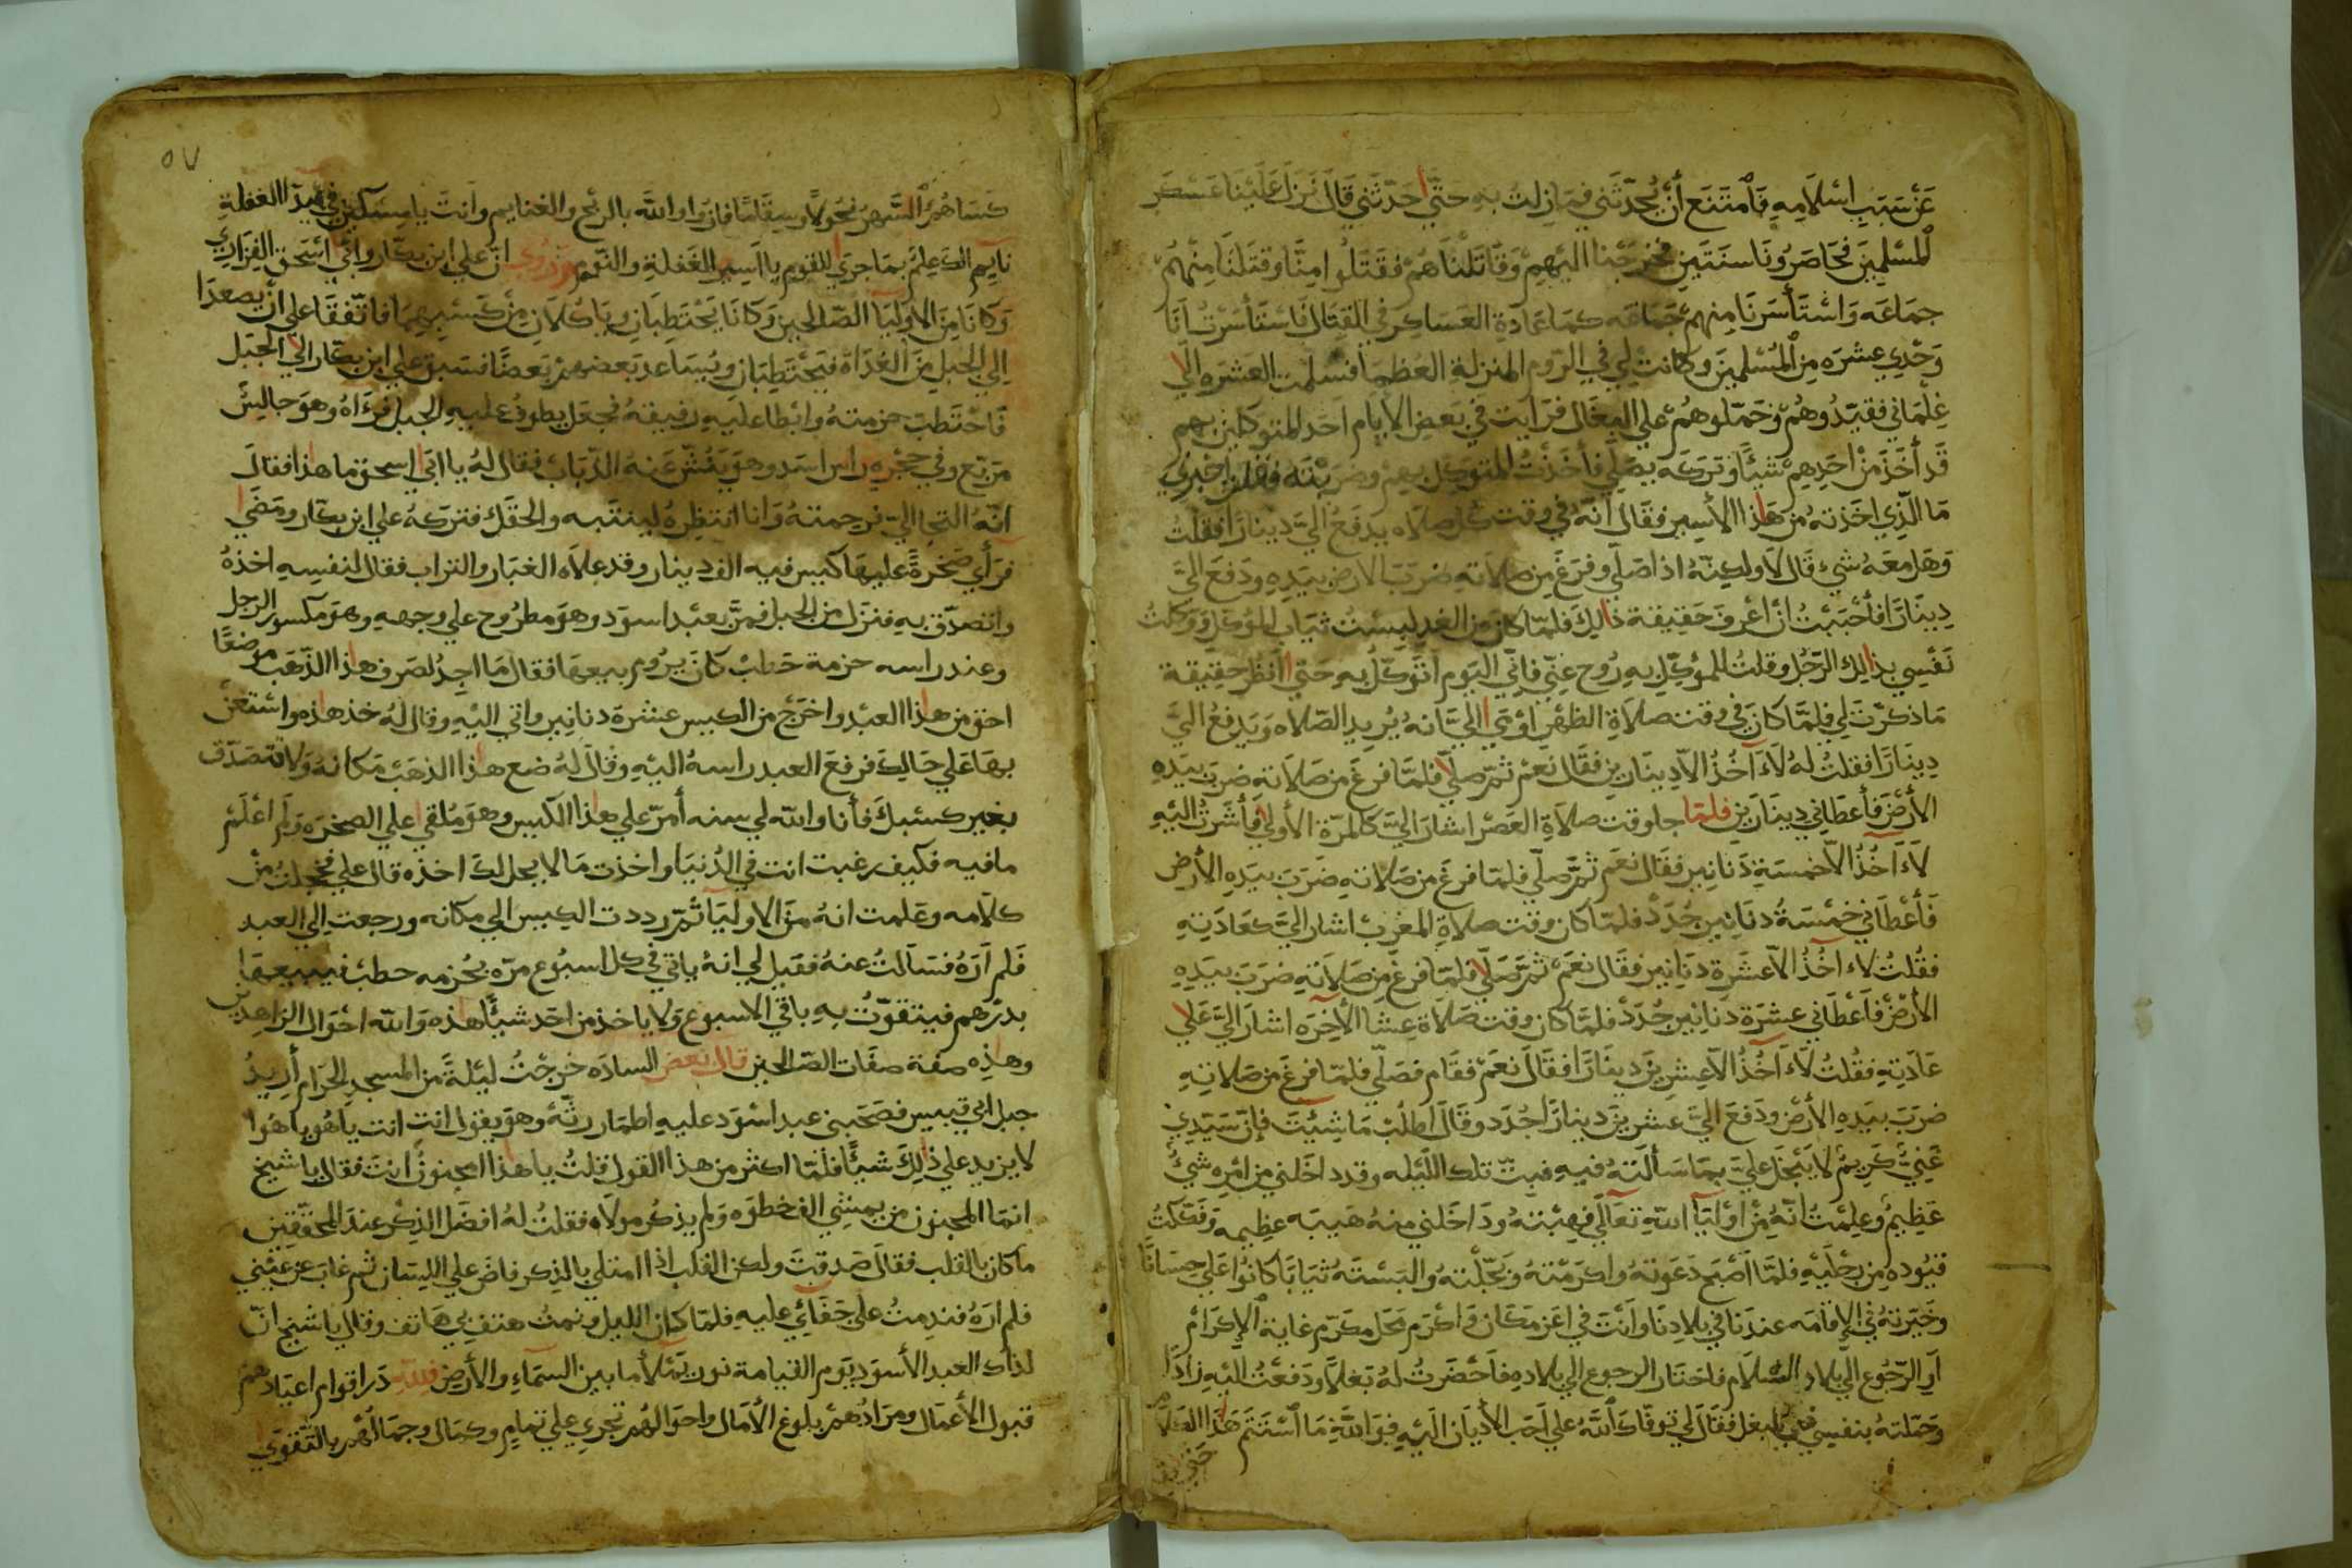 عَنْ سَبَبِ اسْلَامِهِ فَامْتَنَع أَنْ يُحدّثَني فمَازِلتُ بهِ حَتّي حَدّثَني قَالَ نَزَلَ عَلَيْنَا عَسْكر
المسْلِمِينَ فحَاصَرُونَا سَنَتَينِ فخرَجْنا اليْهِمْ وَقَاتَلنَاهُمْ فقَتَلُوا مِنَّا وقتَلنَا مِنْهُمْ
جمَاعَه وَاسْتَأسَرنَا مِنهمْ جَمَاعَه كمَا عَادَةِ العَسَاكِرِ في القِتَال فَاسْتَأسَرْتُ انَا
وَحْدِي عِشرَه مِنَ المُسْلمِينَ وكانتْ لِي في الرّوم المنزلةِ العُظمَا فسَلمت العَشرَه الي
غِلْمَاني فقيّدُوهُمْ وحَمّلوهُمْ علي البِغَال فرَايت في بَعضِ الايّام احَد المتوكلين بهم
قَد أخَذَ مِنْ احَدِهِمْ شَيْئًا وتركَه يصَلّي فأخَذْتُ المتَوكل بهِمْ وضرَبْتَه وقلت اخْبرْني
مَا الّذِي اخَذتهُ من هَذا الأسِير فقَال انّهُ في وقت كُل صَلَاه يدفَعُ اليَّ دينارًا فقلتُ
وَهَل معَهُ شيء قَال لَا ولكِنّهُ اذا صَلّي وفرَغَ مِن صلَاتهِ ضرَبَ الارضَ بيَدِهِ ودَفعَ اليَّ
دِينَارًا فأحْبَبْتُ ان اعْرِفَ حَقيقة ذلكَ فلمّا كانَ مِن الغدِ لبِسْتُ ثيَاب المُوكل ووكلتُ
نَفْسِي بذلِك الرّجُل وقلتُ للموكّلِ بهِ رُوح عنّي فإنّي اليَوم اتَوكّلُ بهِ حَتي انظرَ حقيقة
مَا ذكرْتَ لي فلمّا كانَ في وقت صلَاةِ الظهْرِ اوْمَي اليَّ انهُ يُريد الصّلاه ويَدفعُ اليَّ
دِينَارًا فقلتُ لهُ لَا آخُذُ الّا دِينَارين فقَال نعَمْ ثمّ صلّي فلمّا فرغَ مِن صَلَاتهِ ضربَ بيَدِهِ
الأرْضَ فأعطَاني دِينَارَين فلمّا جا وقت صلَاةِ العَصْر اشَارَ اليَّ كالمرّة الأولي فأشَرْتُ اليْهِ
لَا آخُذُ الّا خمسَةِ دَنَانِير فقَال نعَم ثمّ صلّي فلمّا فرغَ مِن صَلَاتهِ ضَرَبَ بيَدِهِ الأرض
فَأعْطَاني خمْسَةُ دنَانِير جُدَدْ فلمّا كان وقت صلَاةِ المغربْ اشارَ اليَّ كعَادَتِهِ
فقُلتُ لَا آخُذُ الّا عشَرَة دَنانِير فقَال نعَمْ ثمّ صَلّي فلمّا فرغَ مِن صَلَاتهِ ضَرَبَ بيَدِهِ
الأرْضَ فأعْطَاني عشرَة دنانِير جُدَدْ فلمّا كان وقت صَلَاة عِشا الأخِرَه اشارَ اليَّ علي
عَادَتِهِ فقُلتُ لَا آخُذُ الا عِشرِينَ دِينَارًا فقَالَ نعَمْ فقَام فصَلّي فلمّا فرغَ مِن صَلاتِهِ
ضرَبَ بيَدِهِ الأرْضَ ودَفعَ اليَّ عشرينَ دينارًا جُدَدْ وقَالَ اطلُبْ مَا شِئتَ فإن سَيّدِي
غَنيٌّ كريمٌ لَا يَبْخَل عليَّ بمَا سَألتهُ فيهِ فبتّ تلك اللّيْله وقد داخَلني من امْرهِ شيءٌ
عَظِيمٌ وعلِمْتُ انّهُ مِن اوْليَآ اللّهِ تعَالَي فهِبْتهُ ودَاخَلني منهُ هَيبَه عظيمه وفَككتُ
قيُوده مِن رِجْلَيْهِ فلمّا اصْبَح دَعَوتهُ واكرَمْتهُ وبَجّلتهُ والبَسْتهُ ثيَابًا كانُوا عَلي حِسَانًا
وخَيّرتهُ في الإقامَه عندَنا في بلادِنا وأنتَ في اعَزّ مَكَان واكْرَم مَحَل مكرّم غاية الإكرَام
اَو الرّجُوع الي بلاد السّلام فاختار الرجوع الي بلادهِ فاحْضَرتُ لهُ بَغلًا ودَفَعْتُ اليْهِ زادًا
وحَمَلتهُ بنفسِي علي البغل فقَال لي توفّاكَ اللّهُ علي احَب الأديَان اليْهِ فوَاللّهِ مَا اسْتَتم هَذَا الكلام
حَتي
٥٧
كسَاهُمُ السَّهرُ نحُولًا وسِقَامًا فازوا واللّه بالربْح والغنايم وأنتَ يا مِسْكين في هذا الغَفلةِ
نايم الك عِلمٌ بمَا جرَي للقوم يا اسِير الغَفلةِ والنّوم ورُوي ان علي ابن بكّار وابي اسْحق الفزاري
وكانا مِن الاوليَآ الصّالحِين وكَانَا يَحْتَطِبَانِ ويأكُلَانِ مِنْ كسْبِهِمَا فاتّفقَا علي ان يصعدَا
اِلي الجبل مِن الغَدَاة فيَحْتَطِبَان ويُسَاعد بعضهمْ بَعضًا فسَبقَ علي ابن بكّار الي الجبَل
فَاحْتَطبَ حزمتهُ وابْطا عليْهِ رفيقهُ فجعَل يطوفُ عليهِ الجبل فرءَاهُ وهوَ جالِسٌ
مربّع وفي حِجْرهِ راس اسَد وهوَ يَنُشّ عَنهُ الذّبَاب فقال لهُ يا ابي اسحق ما هذا فقالَ
انّهُ التجا اليَّ فرحمتهُ وانا انتظِرهُ لينتَبه والحقك فتركهُ علي ابن بكّار ومَضَي
فرَأي صَخرَةً عليهَا كيس فيه الف دِينار وقد علاه الغبَار والتراب فقال لنفسِهِ اخذهُ
واتصدّق بهِ فنزَل مِن الجبل فمرّ بعبْد اسوَد وهوَ مطرُوح علي وجههِ وهوَ مكسور الرجل
وعند راسه حزمة حَطبْ كانَ يرُوم بيعهَا فقال مَا اجِدُ لصَرف هذا الذّهَب موضعًا
احَق من هذا العبْد واخرَج من الكيس عشرة دنانِير واتي اليْهِ وقال لهُ خذ هذه واسْتعَنْ
بهَا عَلي حَالك فرفعَ العبد راسهُ اليْهِ وقال لهُ ضع هذا الذهبْ مَكانهُ ولا تتصَدّق
بغير كسبكَ فأنا واللّه لي سنه أمرّ علي هذا الكيس وهوَ مُلقي علي الصخرَه ولم اعْلمْ
ما فيه فكيف رغبت انت في الدُنيا واخذت مَا لا يحل لكَ اخذه قال علي فخجلتُ مِنْ
كلَامه وعَلمت انهُ مِن الاوليَآ ثمّ رددت الكيس الي مكانه ورجعت الي العبد
فلم ارَهُ فسَألتُ عنهُ فقيل لي انهُ ياتي في كل اسبُوع مرّه بحُزمه حطبْ فيبيعهَا
بدرْهم فيتقوّتُ بهِ باقي الاسبوع ولا ياخذ من احَد شيئًا هذه واللّه احْوَال الزاهِدين
وهذِه صفة صفَات الصّالحين قال بَعض السادَه خرجْتُ ليْلةً من المسجدِ الحرَام أريدُ
جبل ابي قبيس فصَحَبني عبد اسْوَد عليهِ اطمَار رثّة وهوَ يقول انت انت يا هُو يا هُوا
لا يزيد علي ذلِكَ شيئًا فلمّا اكثر من هذا القول قلتُ يا هذا امجنونٌ انتَ فقال يا شيخ
انمَا المجنون من يمشي الف خطوَه ولم يذكر مولاه فقلتُ لهُ افضَل الذِكر عندَ المحققين
ما كان بالقلب فقالَ صَدقتَ ولكن القلب اذا امتلي بالذِكر فاضَ علي اللِسَان ثم غابَ عن عيْني
فلم ارَهُ فندِمتُ علي جَفَائِي عليه فلمّا كان الليل ونمتُ هتف بي هَاتف وقالَ يا شيخ انّ
لذاك العبد الأسوَد يَوم القيامة نور يَمْلأ ما بين السّمَاءِ والأرض فللّهِ دَر اقوام اعيَادهمْ
قبول الأعمَال ومرَادُهمْ بلوغ الآمَال واحوَالهُم تجري علي تمَامٍ وكمَال وجمَالهُم بالتّقوَي